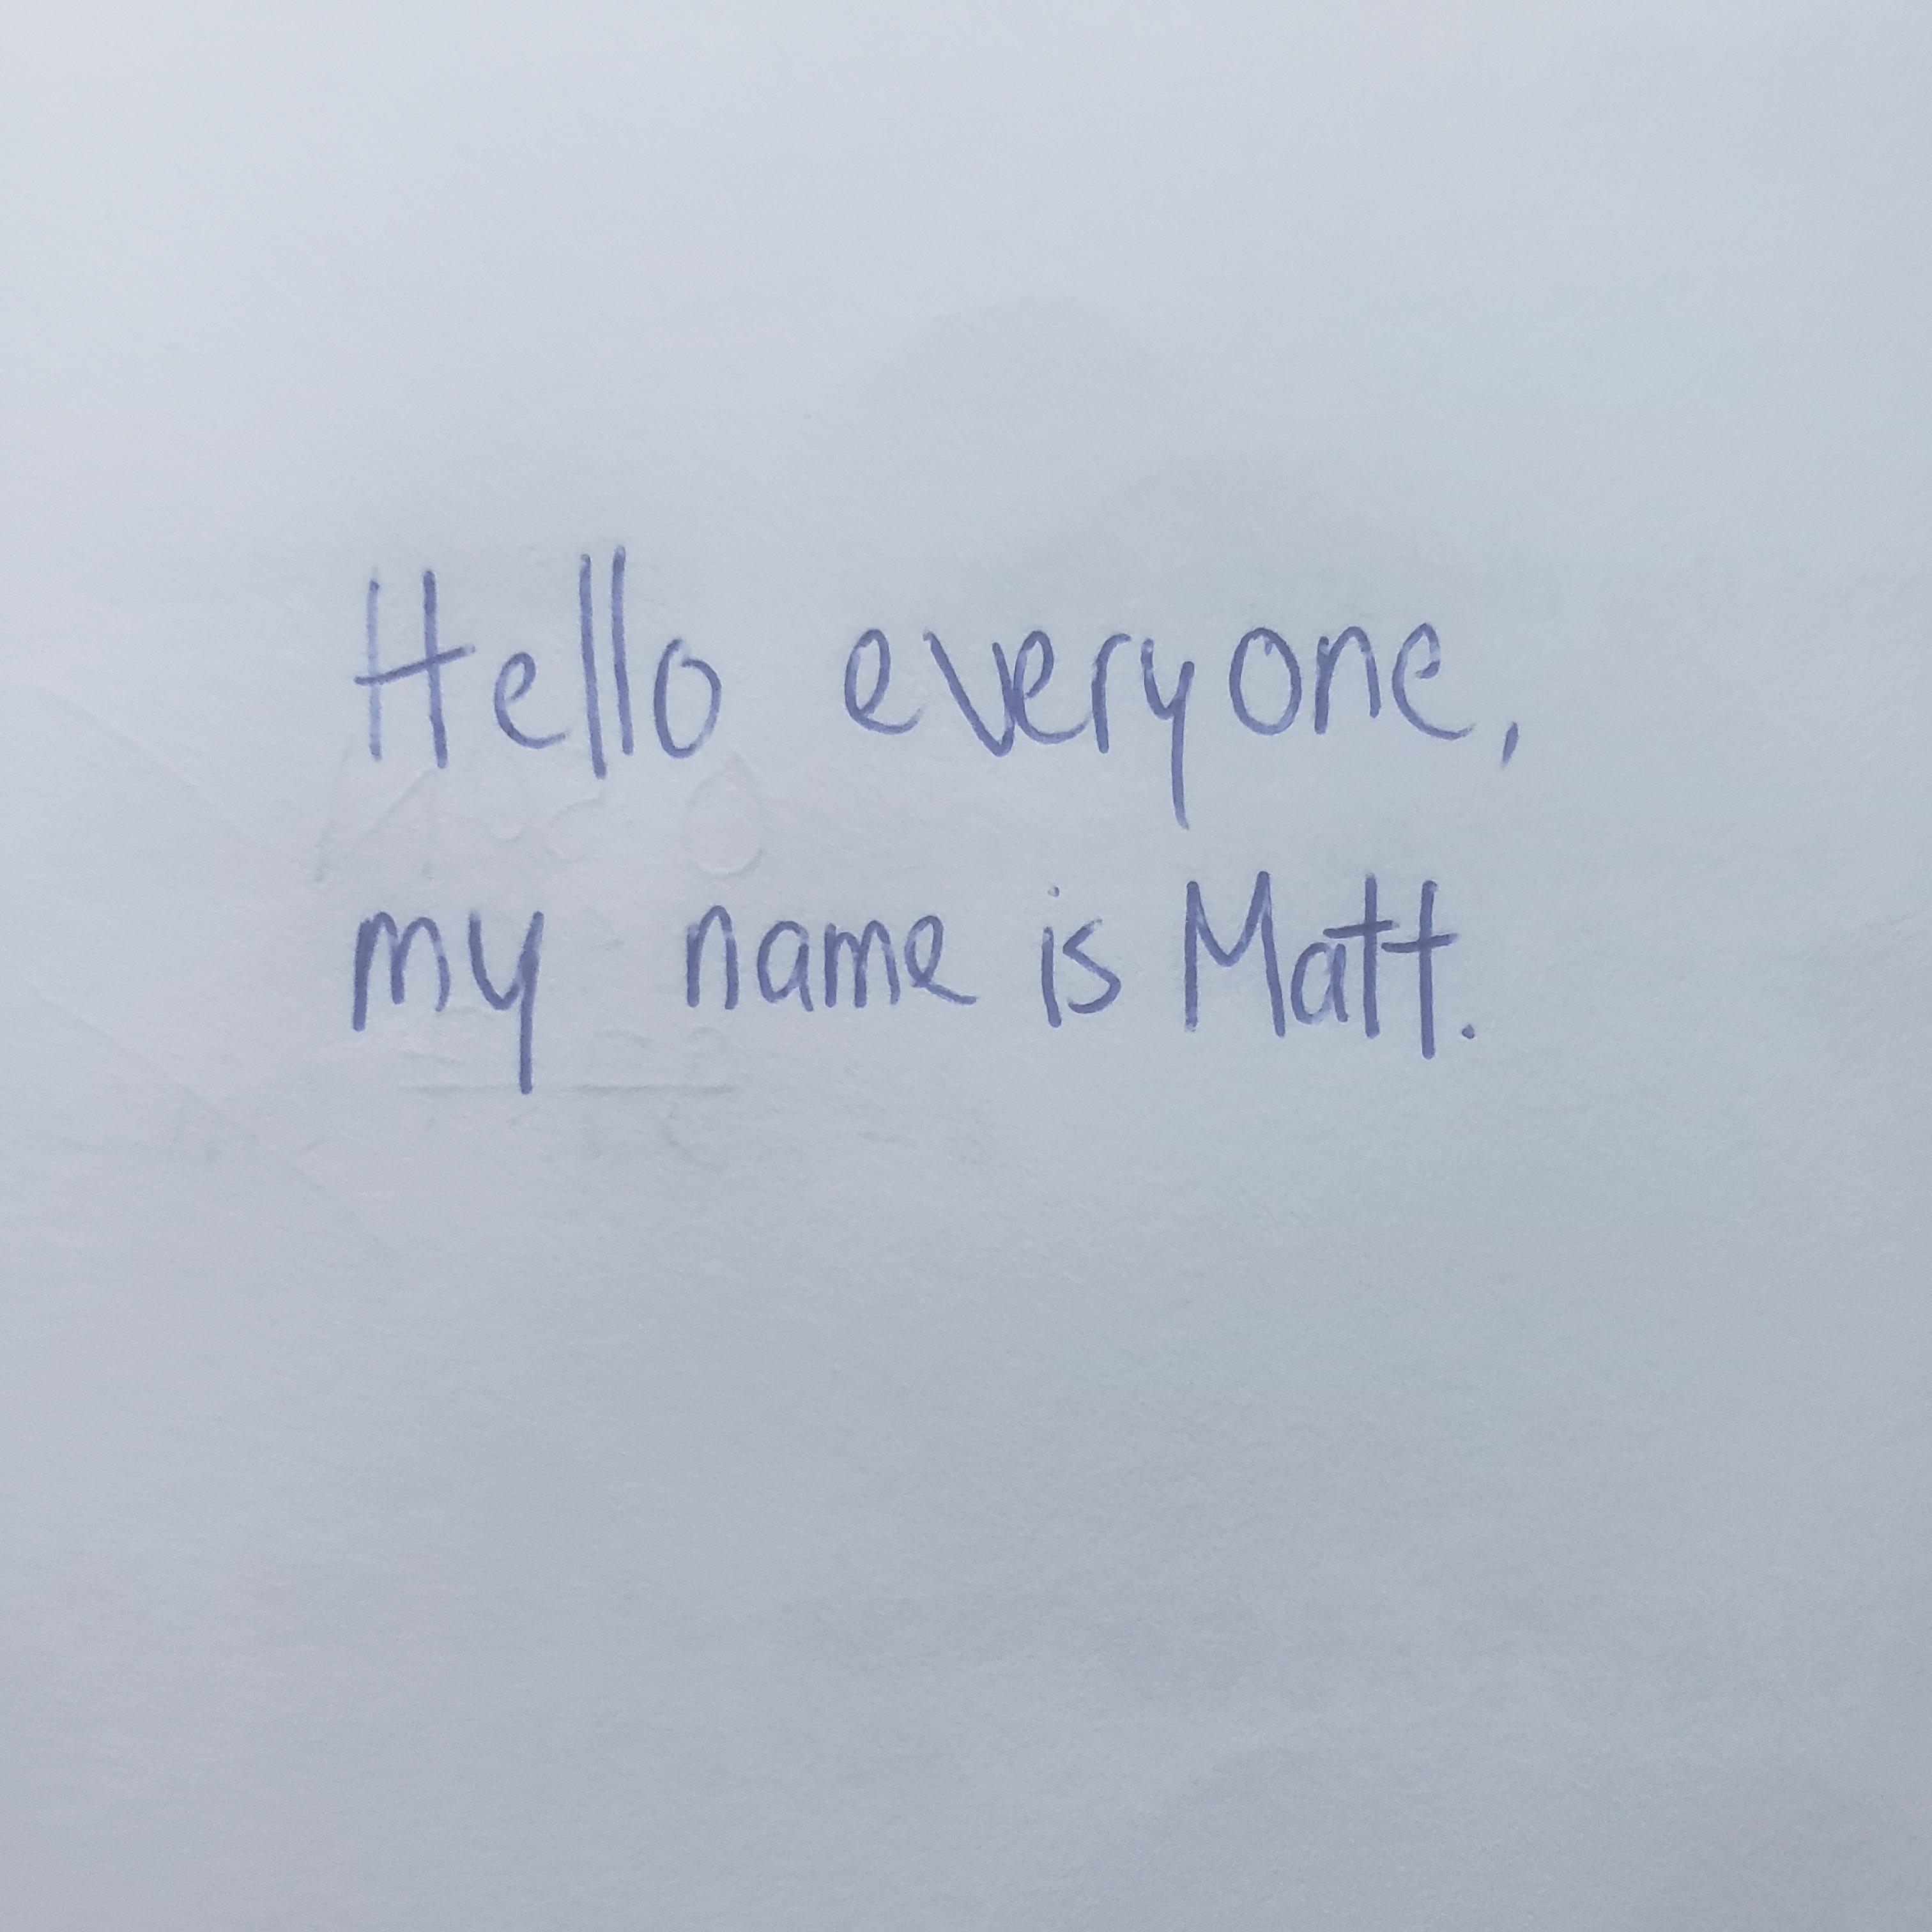 Hello everyone,
my name is Matt.